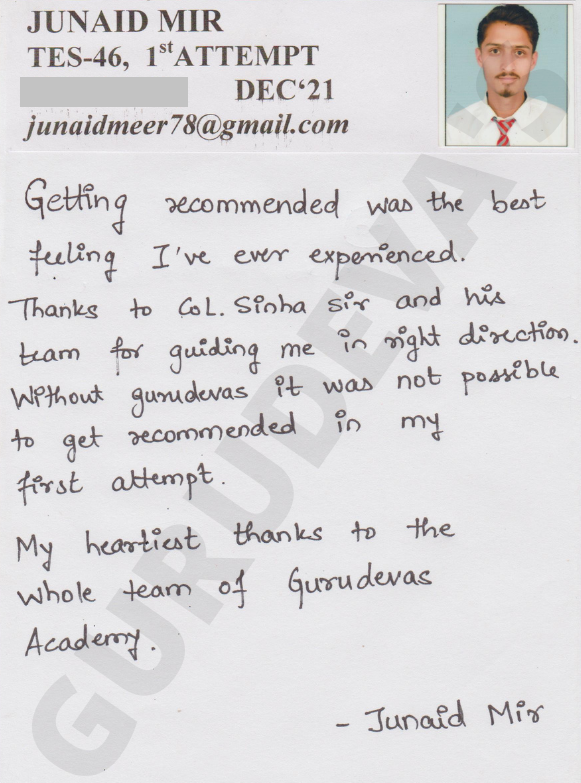 JUNAID MIR
TES-46, 1st ATTEMPT
DEC'21
junaidmeer78@gmail.com
Getting recommended was the best
feeling I've ever experienced.
Thanks to Col. Sinha sir and his
team for guiding me in right direction.
Without gurudevas it was not possible
to get recommended in my
first attempt.
My heartiest thanks to the
whole team of Gurudevas
Academy.
- Junaid Mir
GURUDEVAS